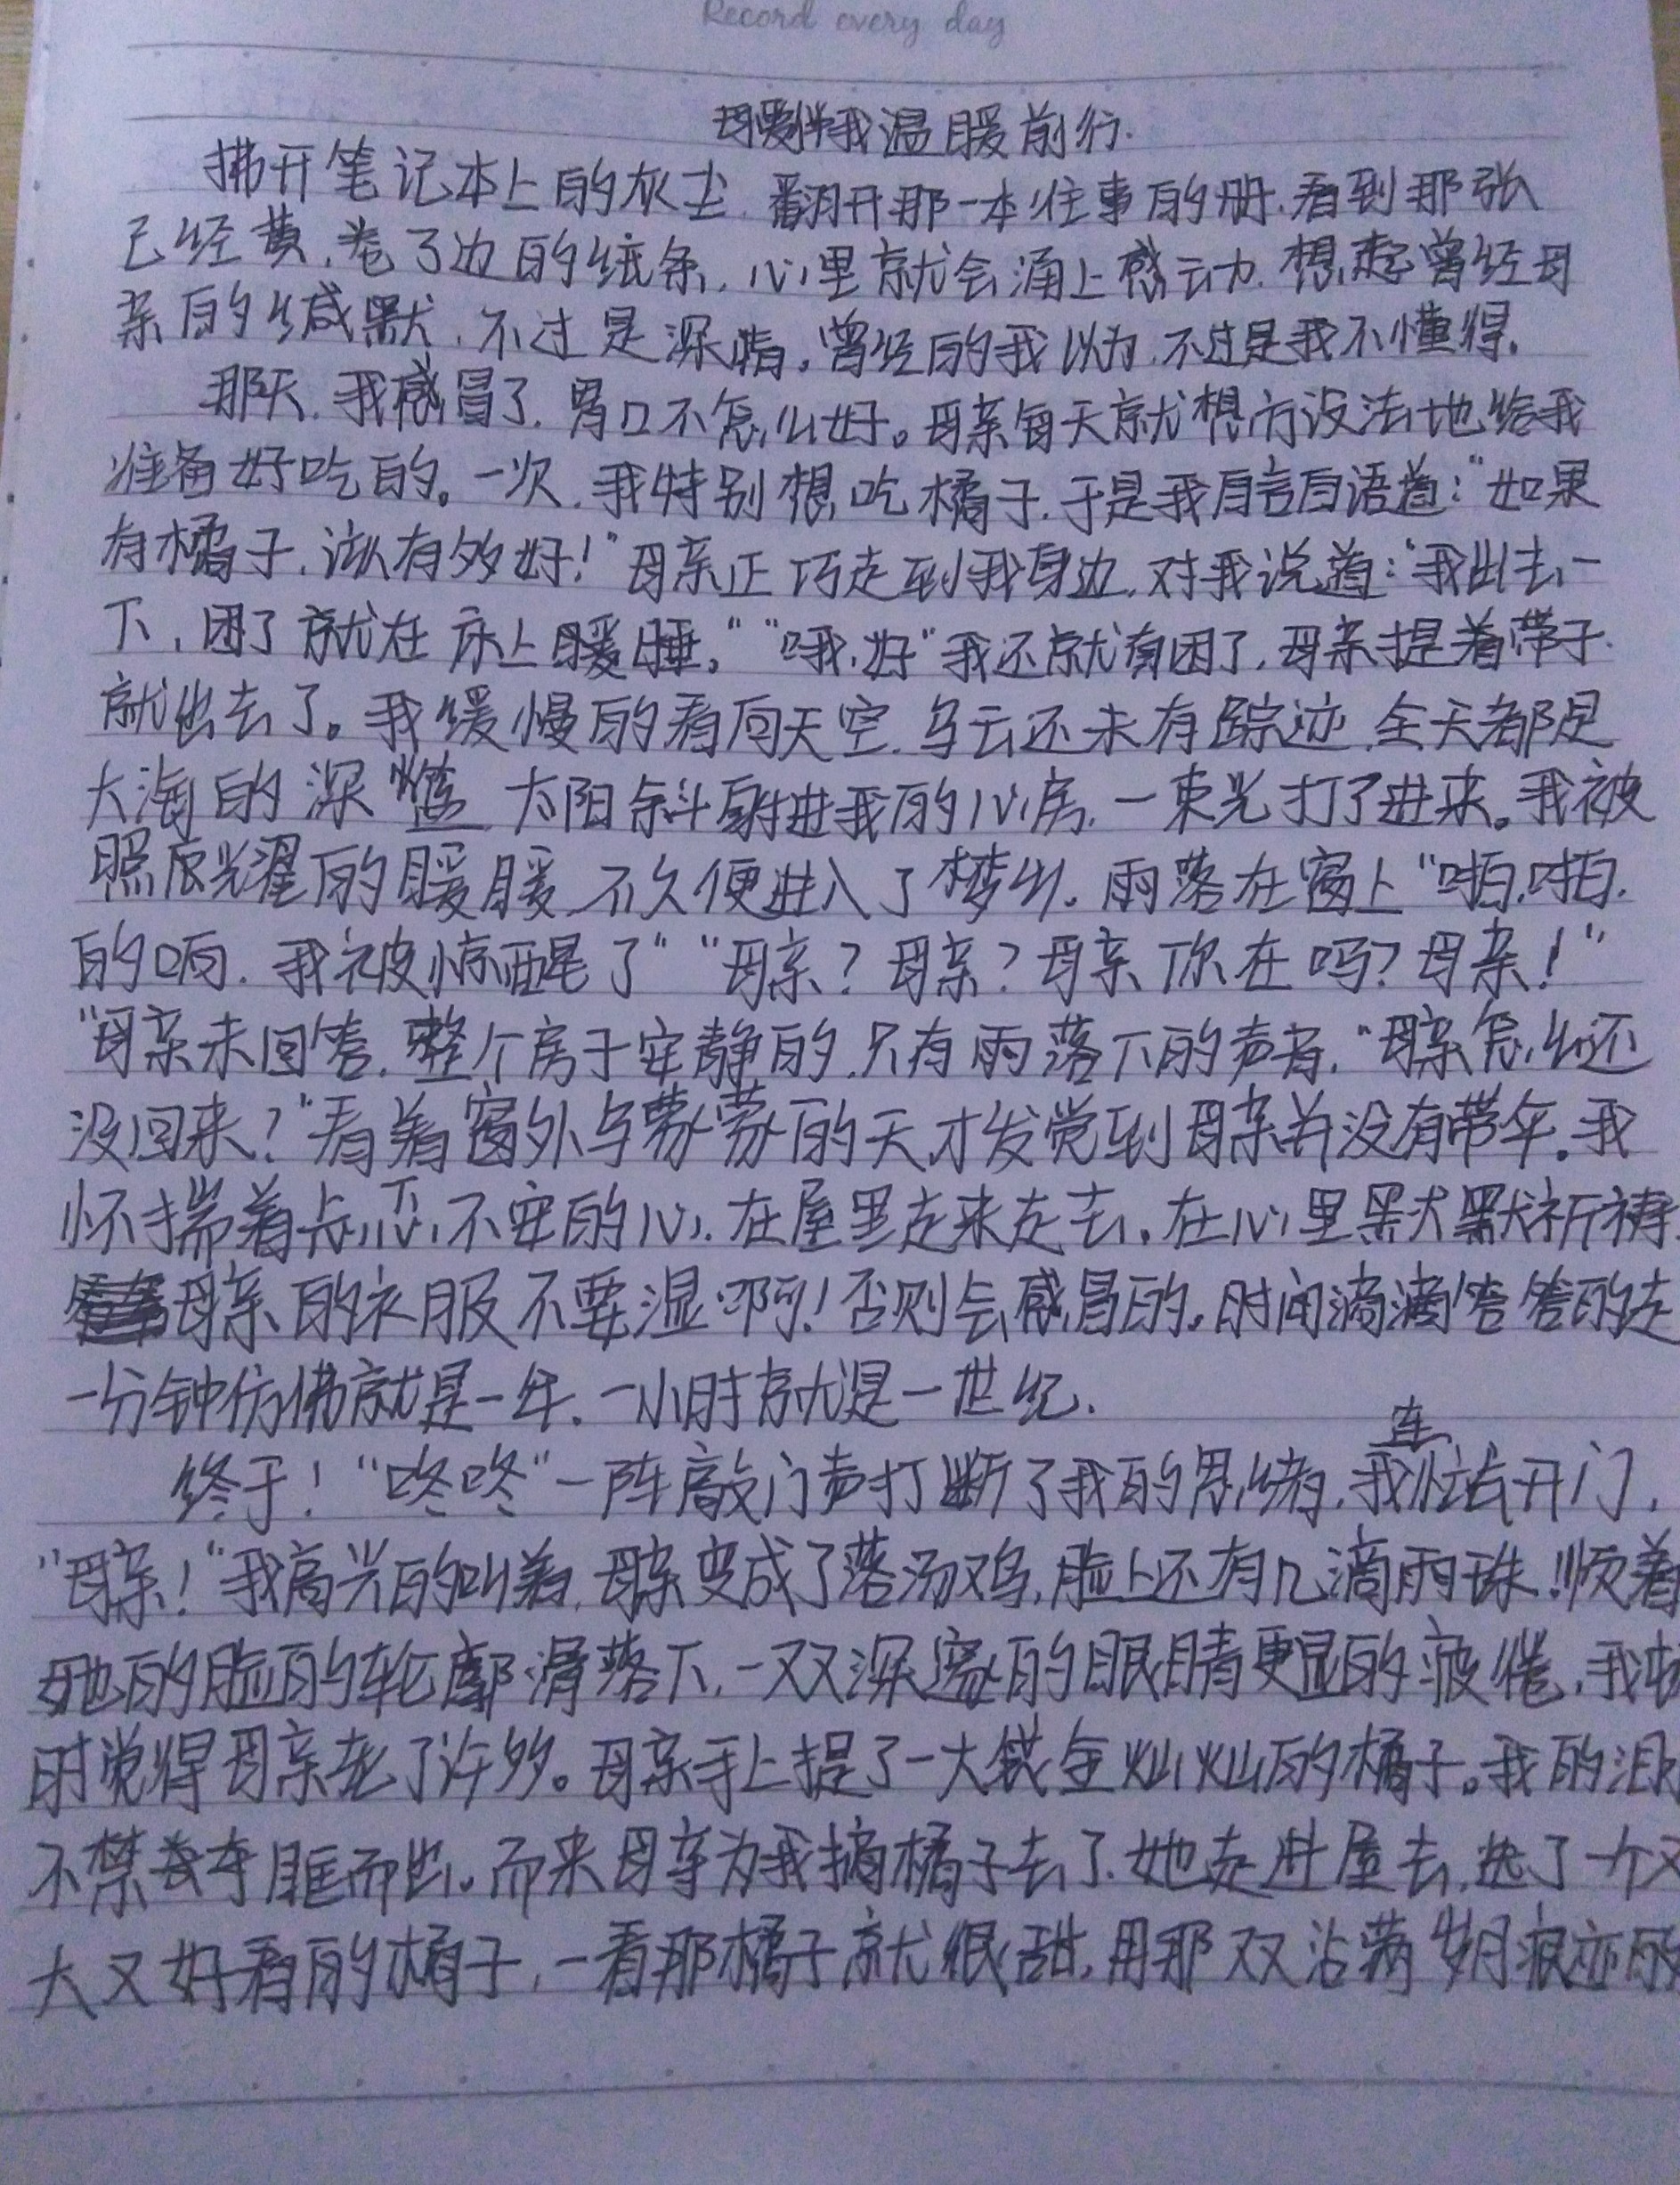 Record every day
母爱伴我温暖前行.
拂开笔记本上的灰尘.翻开那一本往事的册.看到那张
已经黄,卷了边的纸条,心里就会涌上感动.想起曾经母
亲的缄默,不过是深情。曾经的我以为,不过是我不懂得.
那天,我感冒了.胃口不怎么好。母亲每天就想方设法地给我
准备好吃的。一次,我特别想吃橘子,于是我自言自语道:“如果
有橘子,该有多好!”母亲正巧走到我身边,对我说道:“我出去一
下,困了就在床上睡。”“哦,好”我还就有困了,母亲提着带子.
就出去了。我缓慢的看向天空.乌云还未有踪迹,全天都是
大海的深蓝 太阳斜射进我的心房.一束光打了进来。我被
照光耀的暖暖 不久便进入了梦乡.雨落在窗上“啪,啪.
的响.我被惊醒了”“母亲?母亲?母亲你在吗?母亲!”
“母亲未回答.整个房子安静的,只有雨落下的声音.“母亲怎么还
没回来?”看着窗外乌雾雾的天才发觉到母亲并没有带伞。我
怀揣着忐忑不安的心.在屋里走来走去.在心里默默祈祷.
母亲的衣服不要湿啊!否则会感冒的.时间滴滴答答的走
一分钟仿佛就是一年.一小时就是一世纪.
终于!“咚咚”一阵敲门声打断了我的思绪,我连忙去开门,
“母亲!”我高兴的叫着,母亲变成了落汤鸡,脸上还有几滴雨珠!顺着
她的脸的轮廓滑落下,一双深邃的眼睛更显的疲惫,我顿
时觉得母亲老了许多。母亲手上提了一大袋金灿灿的橘子。我的泪
不禁夺眶而出.而来母亲为我摘橘子去了.她走进屋去,选了一个又
大又好看的橘子,一看那橘子就很甜,用那双沾满岁月痕迹的